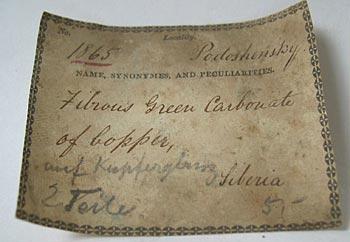 No.
Locality.
1865
Podoshinsky.
NAME, SYNONYMES, AND PECULIARITIES.
Fibrous Green Carbonate
of Copper,
auf Kupferglanz
Siberia
2 Teile
5,-